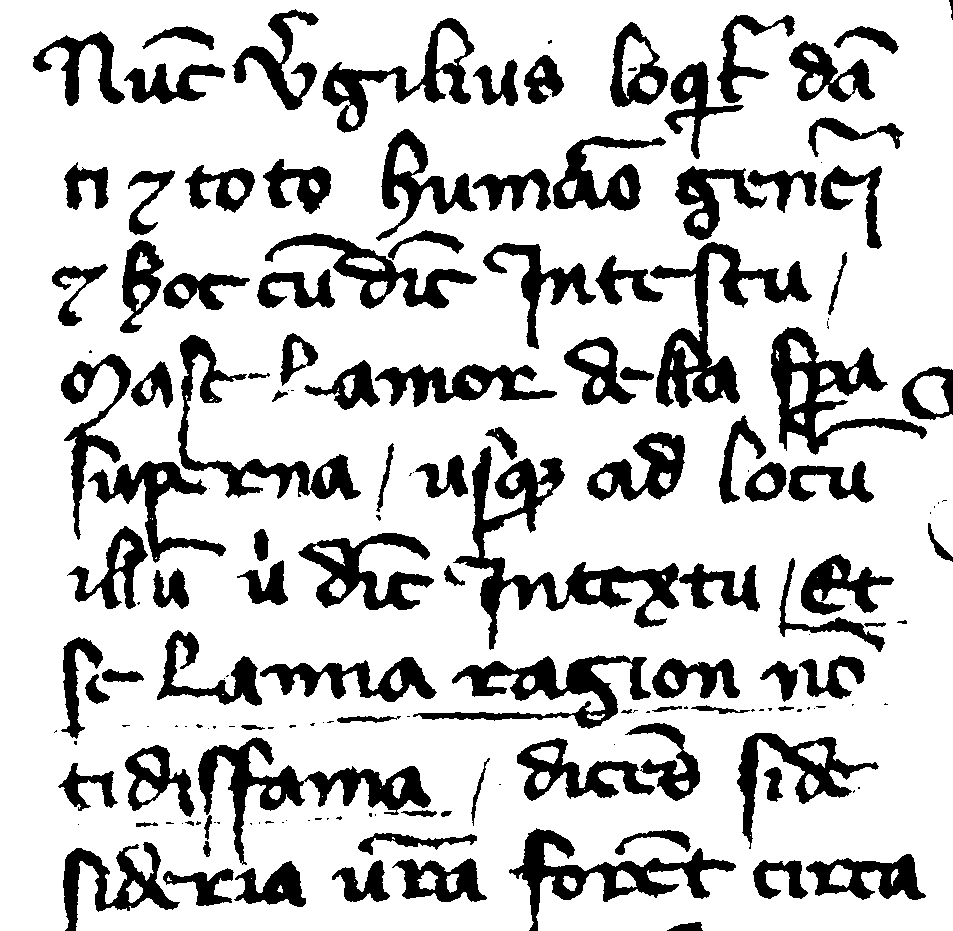 Nūc V͛gilius loqt͛ dā
ti ⁊ toto humāo gen͛ei
⁊ hoc cū dic̄ Intestu /
Mase lamor de lla spa
superna / usq; ad locū
illū ù dic̄ Intextu / Et
se lanna ragion nō
ti disfama / dicēs side
sideria ur̄a forēt circa